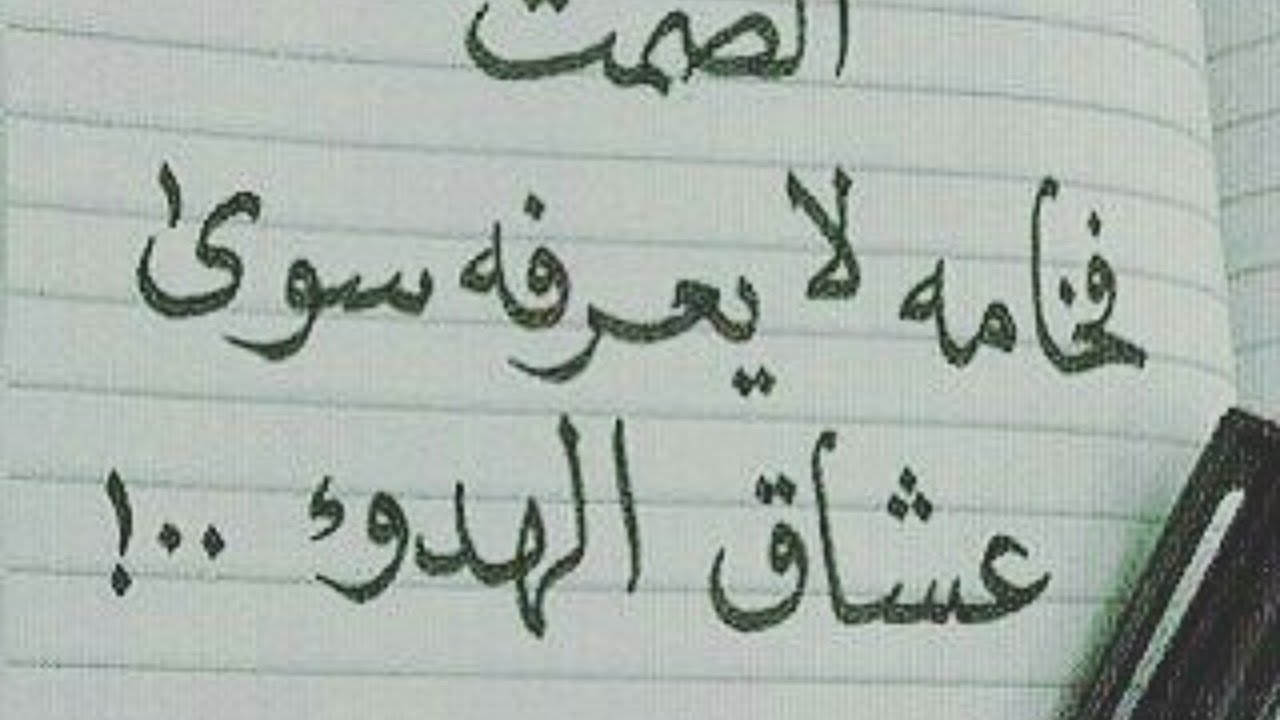 الصمت
فخامه لا يعرفه سوىٰ
عشاق الهدوء ..!